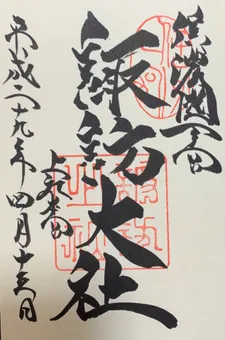 信濃國一之宮
諏訪大社
上社本宮
平成二十九年四月十三日